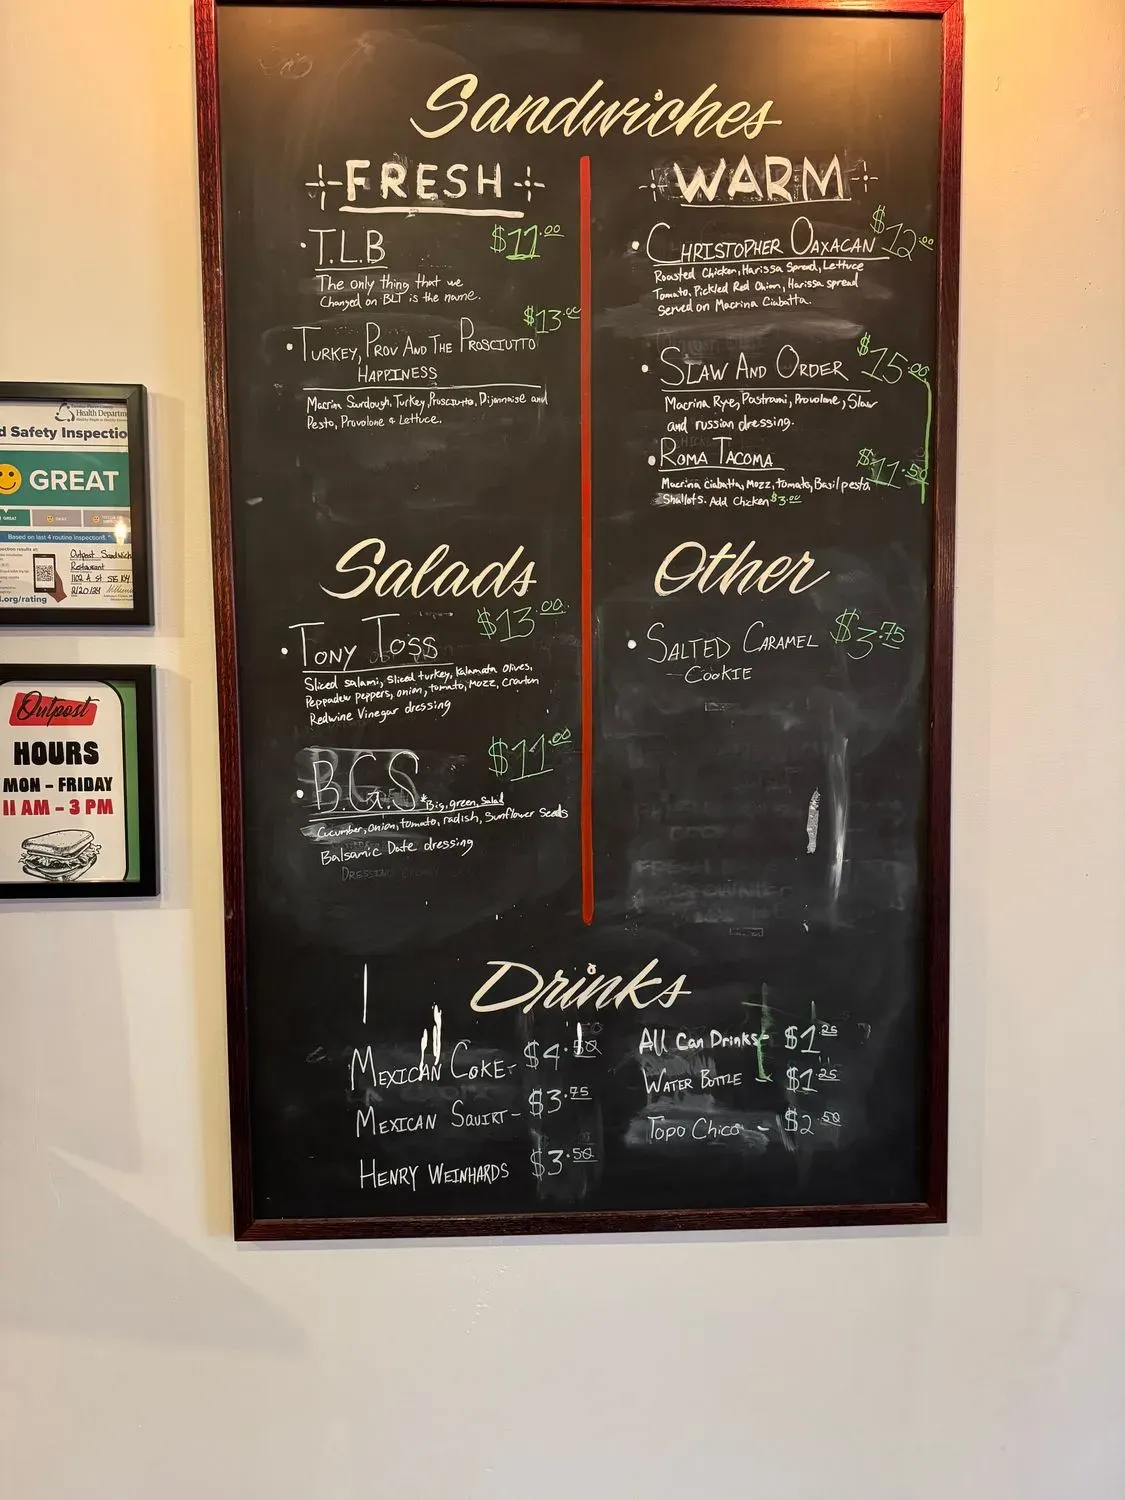 Sandwiches
FRESH
T.L.B $11.00
The only thing that we
Changed on BLT is the name.
$13.00
Turkey, Prov And The Prosciutto
Happiness
Macrin Sourdough, Turkey, Prosciutto, Dijonnaise and
Pesto, Provolone & Lettuce.
WARM
Christopher Oaxacan $12.00
Roasted Chicken, Harissa Spread, Lettuce
Tomato, Pickled Red Onion, Harissa spread
Served on Macrina Ciabatta.
Slaw And Order $15.00
Macrina Rye, Pastrami, Provolone, Slaw
and russian dressing.
Roma Tacoma $11.50
Macrina Ciabatta, Mozz, tomato, Basil pesto,
Shallots. Add Chicken $3.00
Salads
Tony Toss $13.00
Sliced salami, Sliced turkey, Kalamata Olives,
Peppadew peppers, onion, tomato, mozz, crouton
Redwine Vinegar dressing
B.G.S $11.00
*Big, green, Salad
Cucumber, onion, tomato, radish, Sunflower Seeds
Balsamic Date dressing
Other
Salted Caramel $3.75
Cookie
Drinks
Mexican Coke- $4.50
Mexican Squirt- $3.75
Henry Weinhards $3.50
All Can Drinks- $1.25
Water Bottle - $1.25
Topo Chico - $2.50
Health Departm
d Safety Inspectio
GREAT
GREAT
OKAY
Based on last 4 routine inspections.*
Outpost Sandwich
Restaurant
1102 A St STE 104
2/20/24
.org/rating
Outpost
HOURS
MON - FRIDAY
11 AM - 3 PM